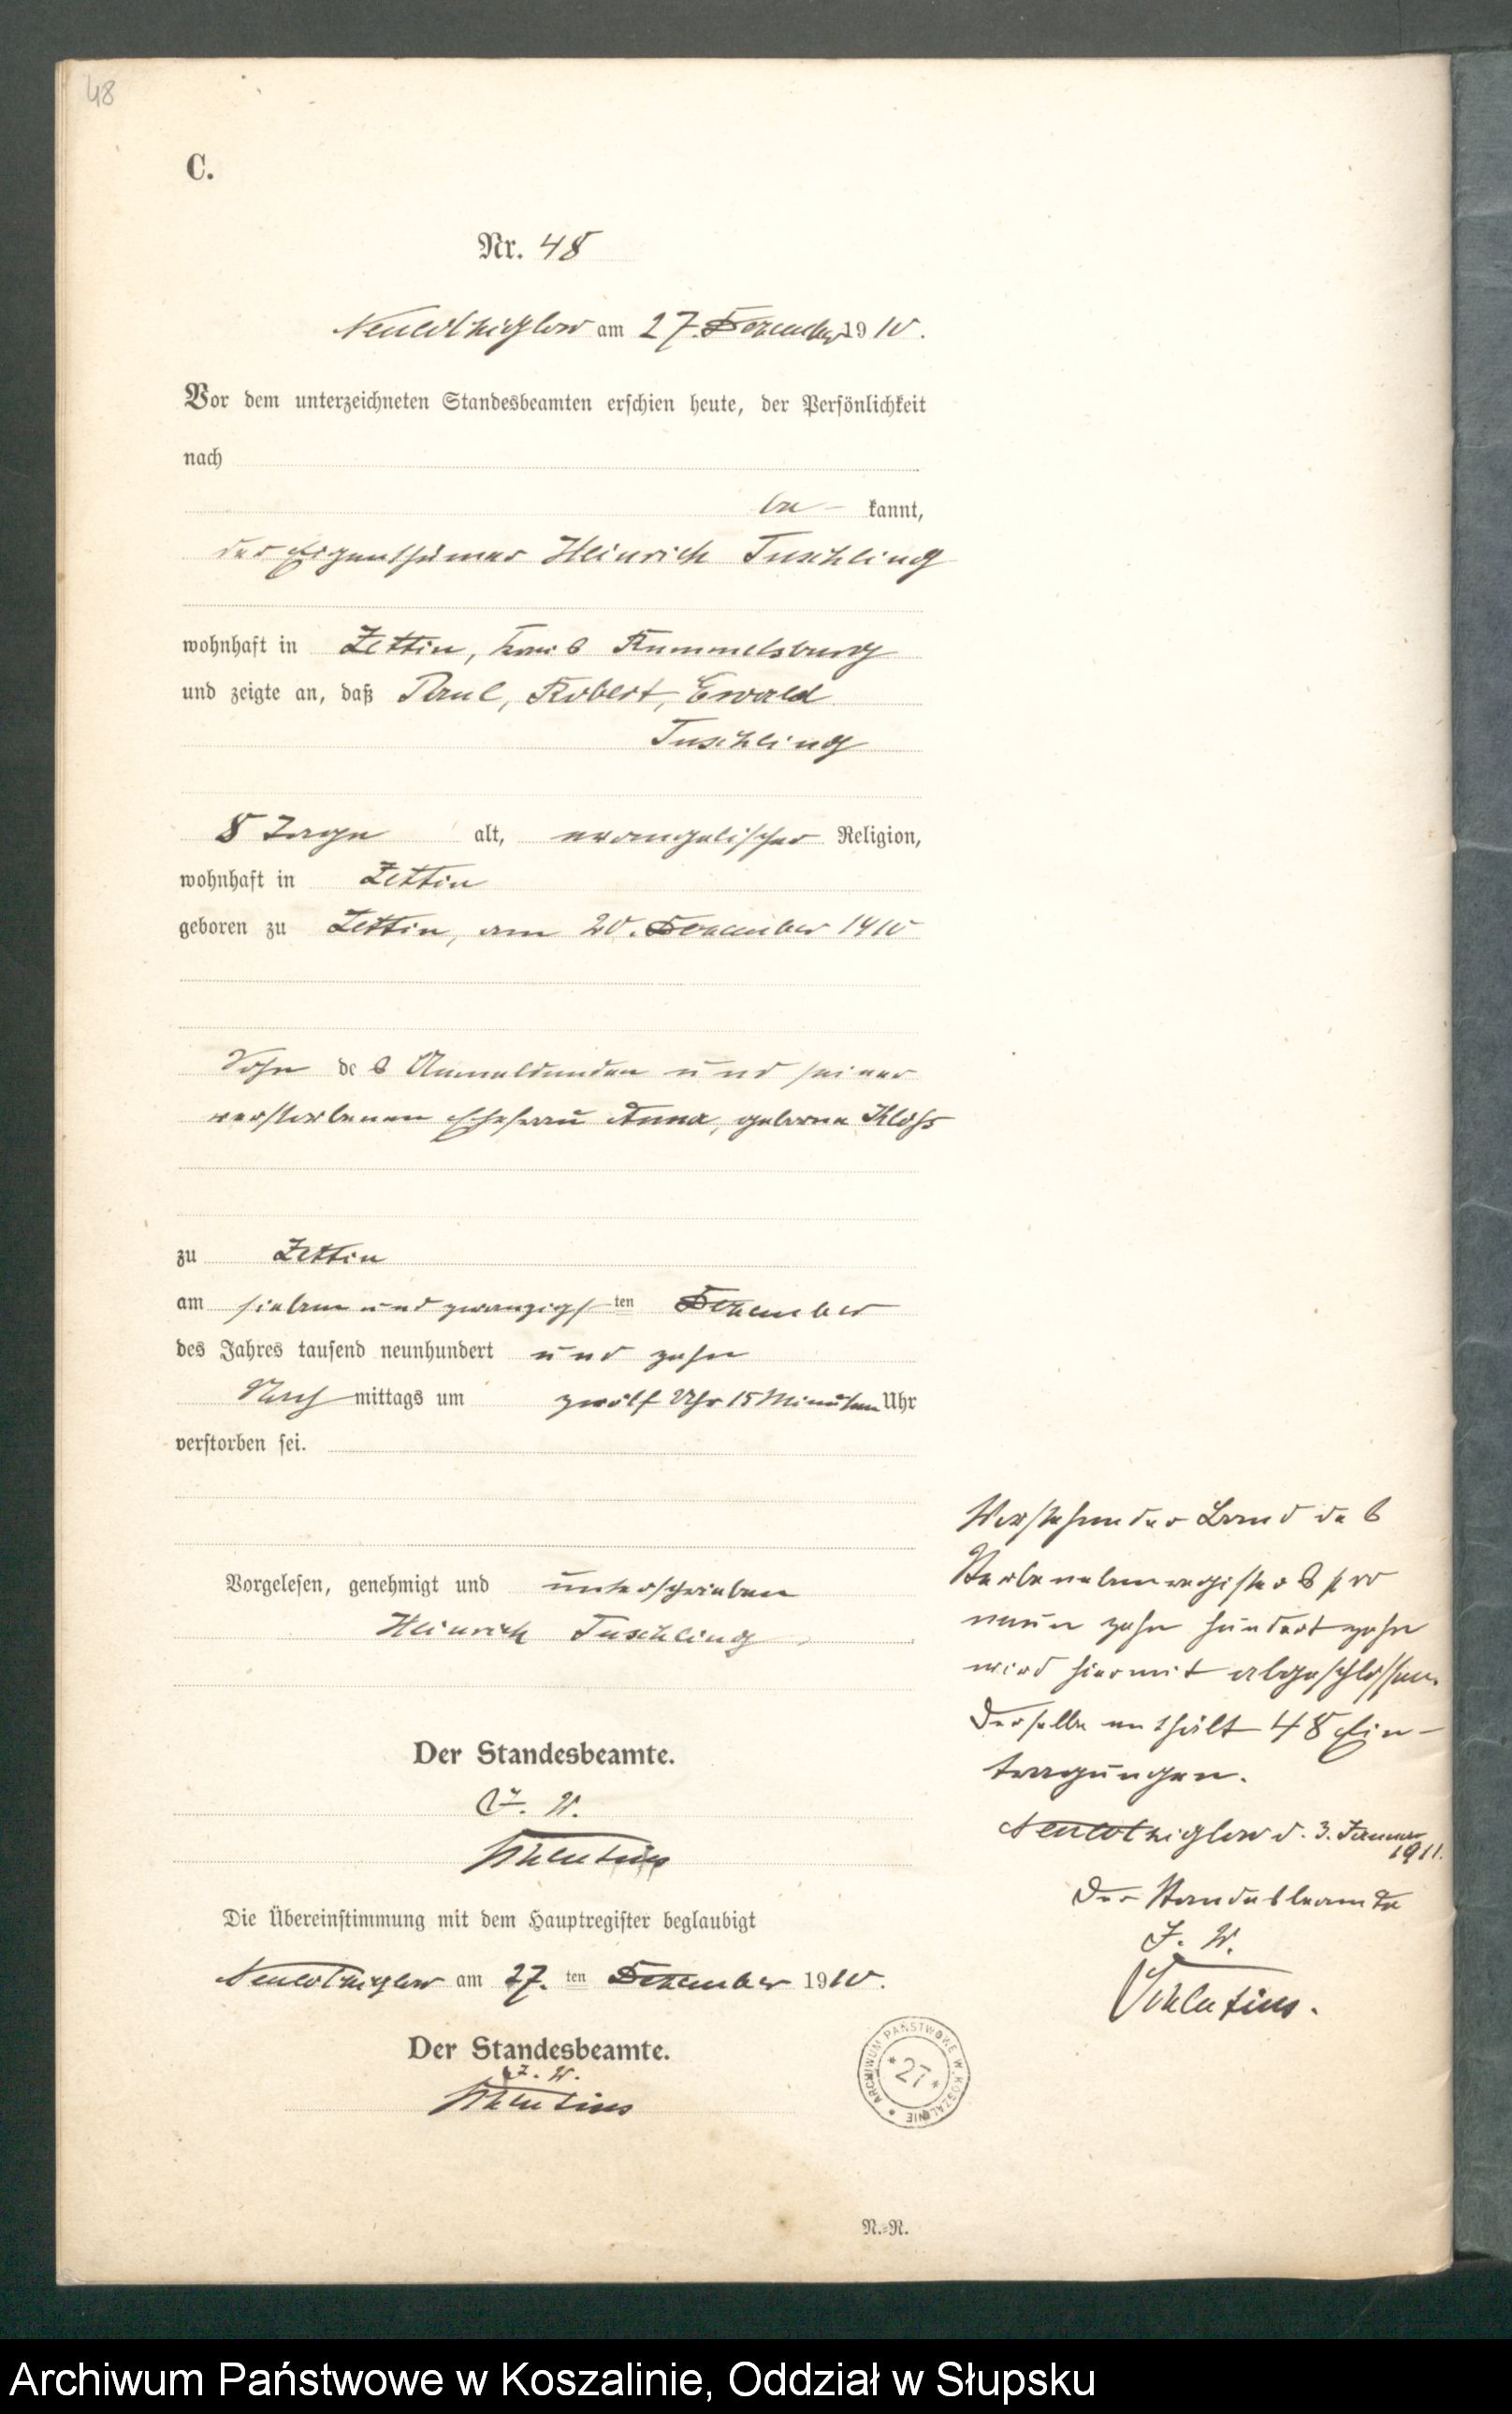 48
C.
Nr. 48
Neukolziglow am 27. Dezember 1910.
Vor dem unterzeichneten Standesbeamten erschien heute, der Persönlichkeit
nach
be- kannt,
der Eigenthümer Heinrich Tuschling
wohnhaft in Zettin, Kreis Rummelsburg
und zeigte an, daß Paul, Robert, Ewald
Tuschling
8 Tage alt, evangelischer Religion,
wohnhaft in Zettin
geboren zu Zettin, am 20. Dezember 1910
Sohn des Anmeldenden und seiner
verstorbenen Ehefrau Anna, geborne Klohs
zu Zettin
am sieben und zwanzigsten Dezember
des Jahres tausend neunhundert und zehn
Nach mittags um zwölf Uhr 15 Minuten Uhr
verstorben sei.
Vorgelesen, genehmigt und unterschrieben
Heinrich Tuschling
Der Standesbeamte.
J. V.
Die Übereinstimmung mit dem Hauptregister beglaubigt
Neukolziglow am 27. ten Dezember 1910.
Der Standesbeamte.
J. V.
Vorstehender Band des
Sterbenebenregisters pro
neun zehn hundert zehn
wird hiermit abgeschlossen.
Derselbe enthält 48 Ein-
tragungen.
Neukolziglow d. 3. Januar
1911.
Der Standesbeamte
J. V.
ARCHIWUM PAŃSTWOWE W KOSZALINIE
* 27 *
N.-R.
Archiwum Państwowe w Koszalinie, Oddział w Słupsku